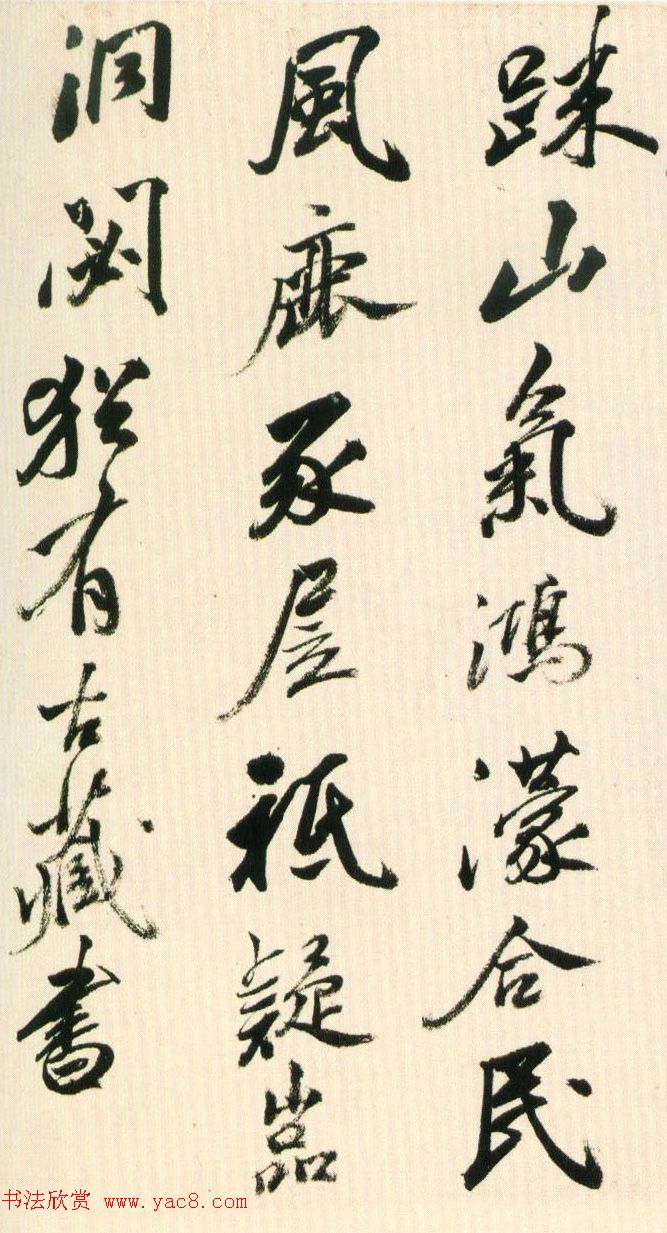 踈山氣鴻濛合民
風鹿豕居祗疑嵓
洞閟猶有古藏書
书法欣赏 www.yac8.com